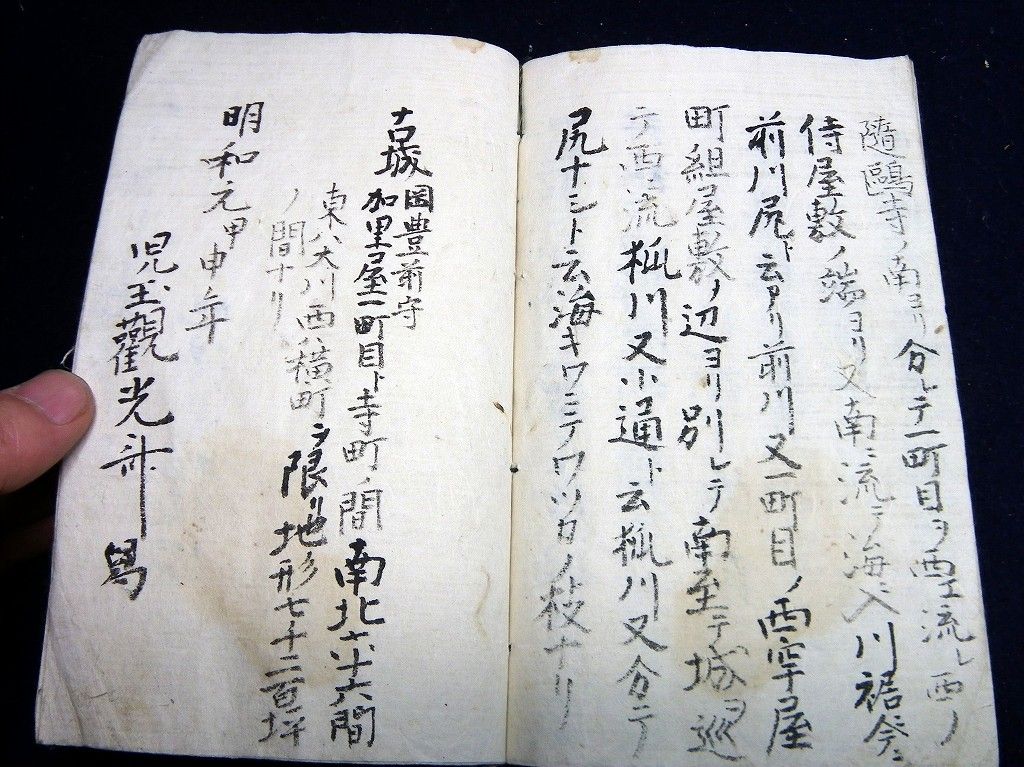 隨鷗寺ノ南ヨリ分レテ一町目ヲ西エ流レ西ノ
侍屋敷ノ端ヨリ又南ニ流テ海ニ入川裾今ニ
前川尻ト云アリ前川又一町目ノ西牢屋
町組屋敷ノ辺ヨリ別レテ南至テ城ヲ巡
テ西流 川又小通ト云 川又分テ
尻ナシト云海キワニテワツカノ枝ナリ
古城 岡豊前守
加里屋一町目ト寺町ノ間南北 十六間
東ハ大川西ハ横町ヲ限リ地形七千二百坪
ノ間ナリ
明和元甲申年
児玉觀光 寫